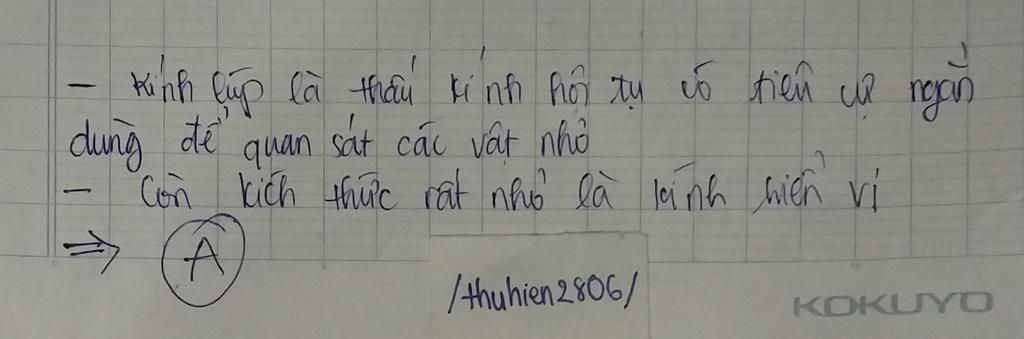 - Kính lúp là thấu kính hội tụ có tiêu cự ngắn
dùng để quan sát các vật nhỏ
- Còn kích thức rất nhỏ là kính hiển vi
⇒ A
/thuhien2806/
KOKUYO